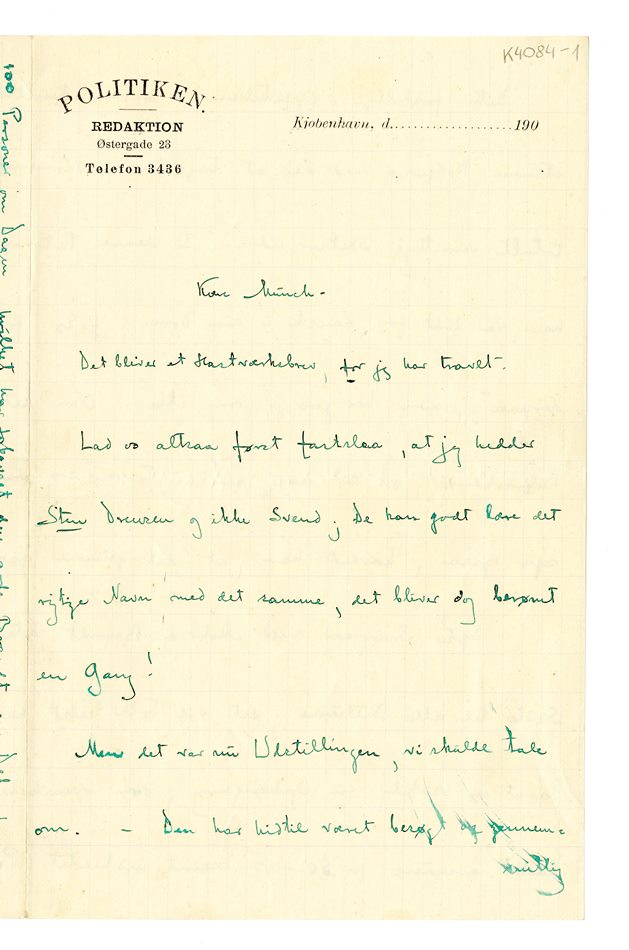 K4084-1
POLITIKEN.
REDAKTION
Østergade 23
Telefon 3436
Kjøbenhavn, d.....................190
Kære Munch -
Det bliver et Hastværksbrev, for jeg har travlt.
Lad os altsaa først fastslaa, at jeg hedder
Sten Drewsen og ikke Svend; De kan godt lære det
rigtige Navn med det samme, det bliver dog berømt
en Gang!
Men det var nu Udstillingen, vi skulde tale
om. - Den har hidtil været besøgt af gennem=
snitlig
100 Personer om Dagen hvilket har